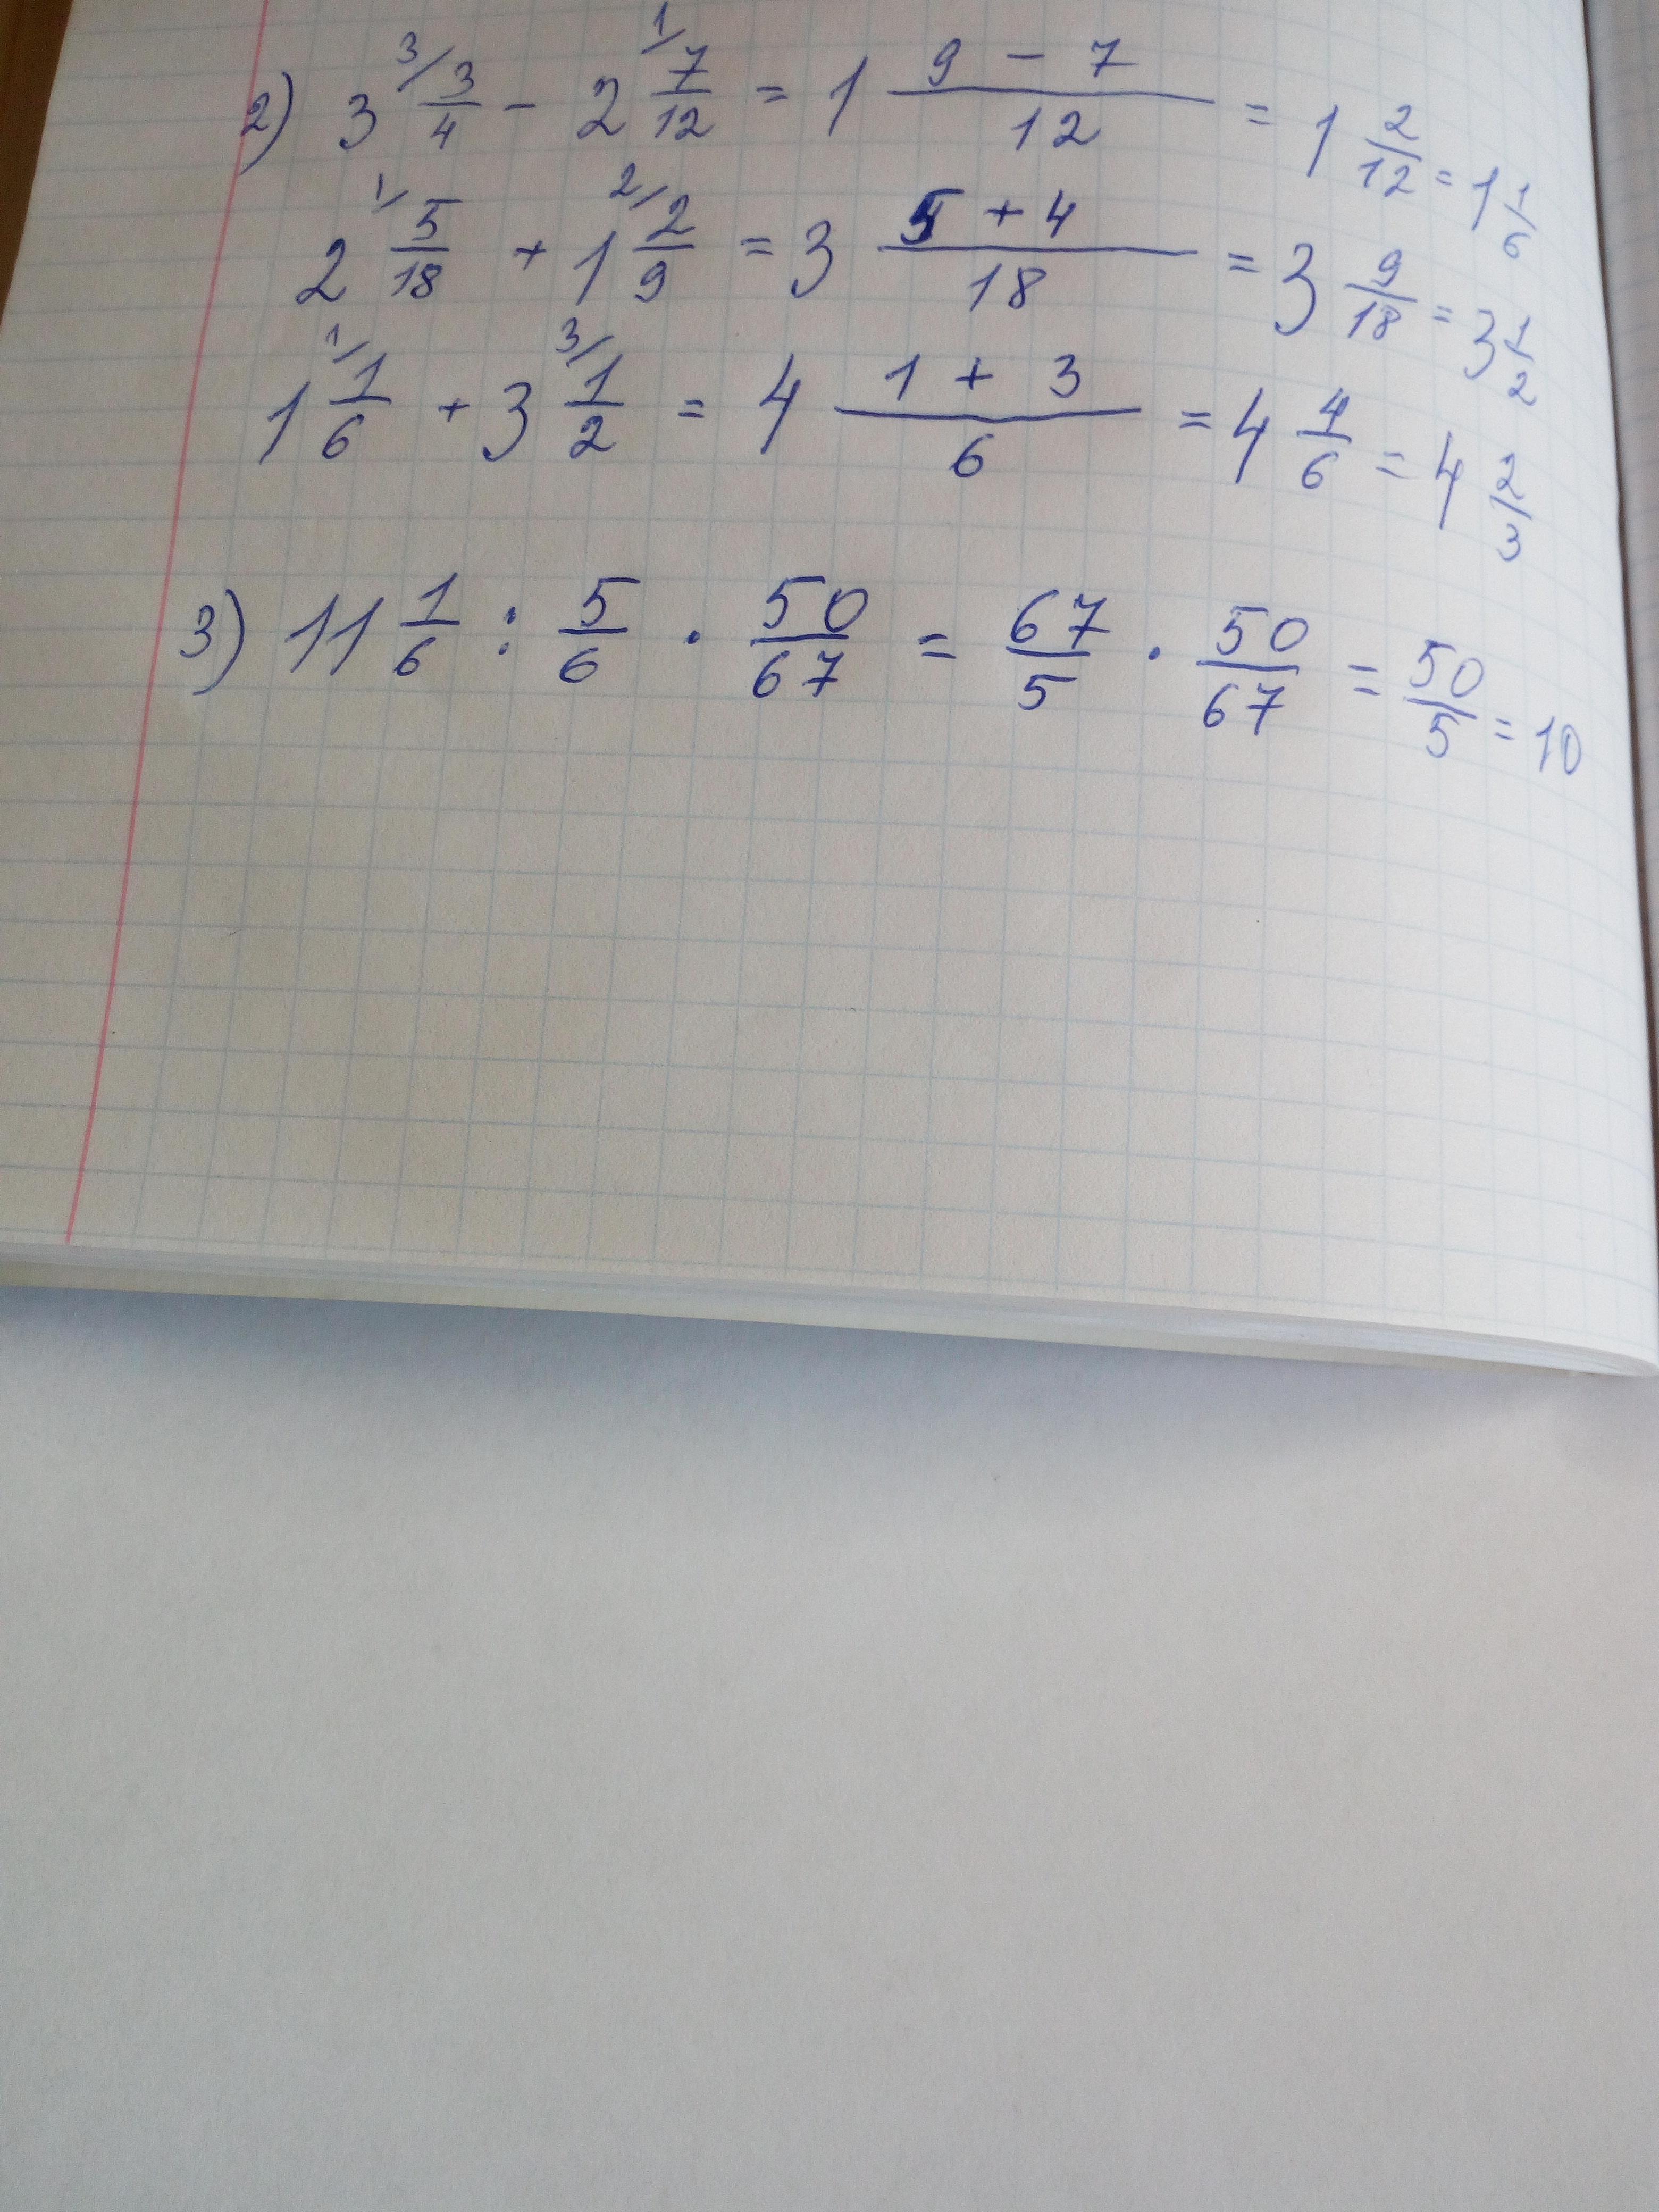 2) 3 ³/ 3/4 - 2 ¹/ 7/12 = 1 (9 - 7)/12 = 1 2/12 = 1 1/6
2 ¹/ 5/18 + 1 ²/ 2/9 = 3 (5 + 4)/18 = 3 9/18 = 3 1/2
1 ¹/ 1/6 + 3 ³/ 1/2 = 4 (1 + 3)/6 = 4 4/6 = 4 2/3
3) 11 1/6 : 5/6 · 50/67 = 67/5 · 50/67 = 50/5 = 10